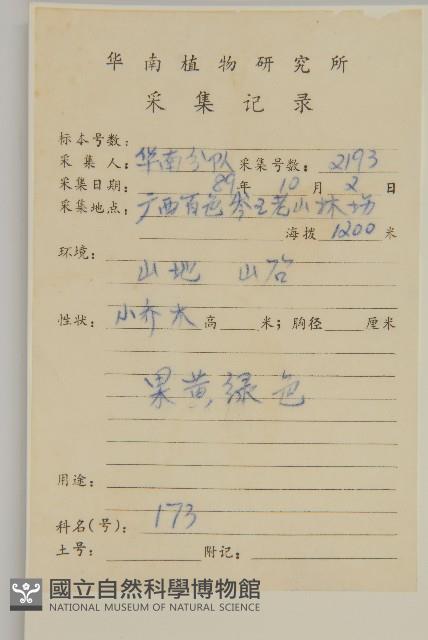 华南植物研究所
采集记录
标本号数：
采集人：华南分队 采集号数：2193
采集日期：89年10月2日
采集地点：广西百色岑王老山林场
海拨 1200 米
环境：
山地 山谷
性状：小乔木 高 米；胸径 厘米
果黄绿色
用途：
科名(号)：173
土号： 附记：
國立自然科學博物館
NATIONAL MUSEUM OF NATURAL SCIENCE